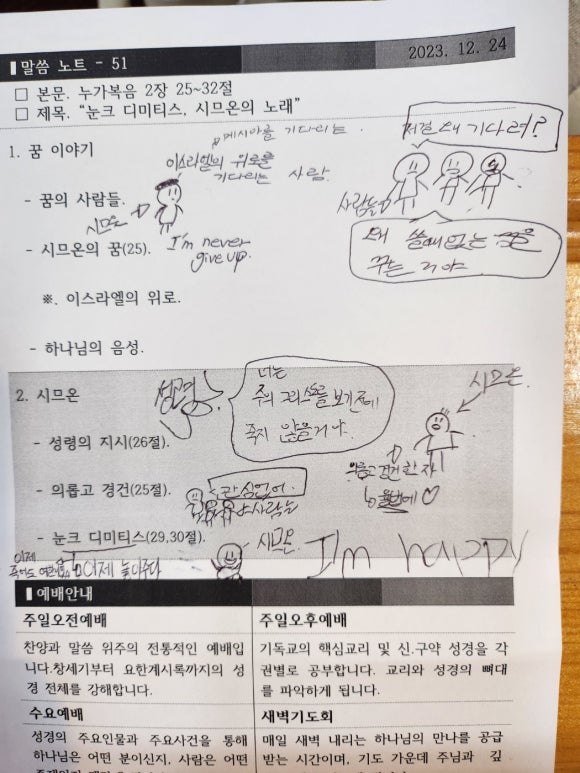 ▌말씀 노트 - 51
2023. 12. 24
□ 본문. 누가복음 2장 25~32절
□ 제목. “눈크 디미티스, 시므온의 노래”
메시아를 기다리는
저걸 왜 기다려?
1. 꿈 이야기
이스라엘의 위로를
기다리는 사람
- 꿈의 사람들.
사람들
시므온
왜 쓸데없는 꿈을
꾸는 거야
- 시므온의 꿈(25).
I'm never
give up.
※. 이스라엘의 위로.
- 하나님의 음성.
2. 시므온
성령
너는
주의 그리스도를 보기 전에
죽지 않을거야.
시므온
- 성령의 지시(26절).
의롭고 경건한 자
- 의롭고 경건(25절).
사람들
- 눈크 디미티스(29,30절).
시므온
I'm happy
이제
이제 놓아주다
▌예배안내
주일오전예배
찬양과 말씀 위주의 전통적인 예배입
니다.창세기부터 요한계시록까지의 성
경 전체를 강해합니다.
주일오후예배
기독교의 핵심교리 및 신.구약 성경을 각
권별로 공부합니다. 교리와 성경의 뼈대
를 파악하게 됩니다.
수요예배
성경의 주요인물과 주요사건을 통해
하나님은 어떤 분이신지, 사람은 어떤
새벽기도회
매일 새벽 내리는 하나님의 만나를 공급
받는 시간이며, 기도 가운데 주님과 깊